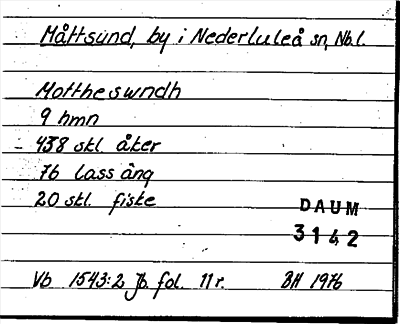 Måttsund, by i Nederluleå sn, Nb.l.
Mottheswndh
9 hmn
438 skl åker
76 lass äng
20 skl. fiske
DAUM
3142
Vb 1543:2 Jb fol. 11 r. BH 1976